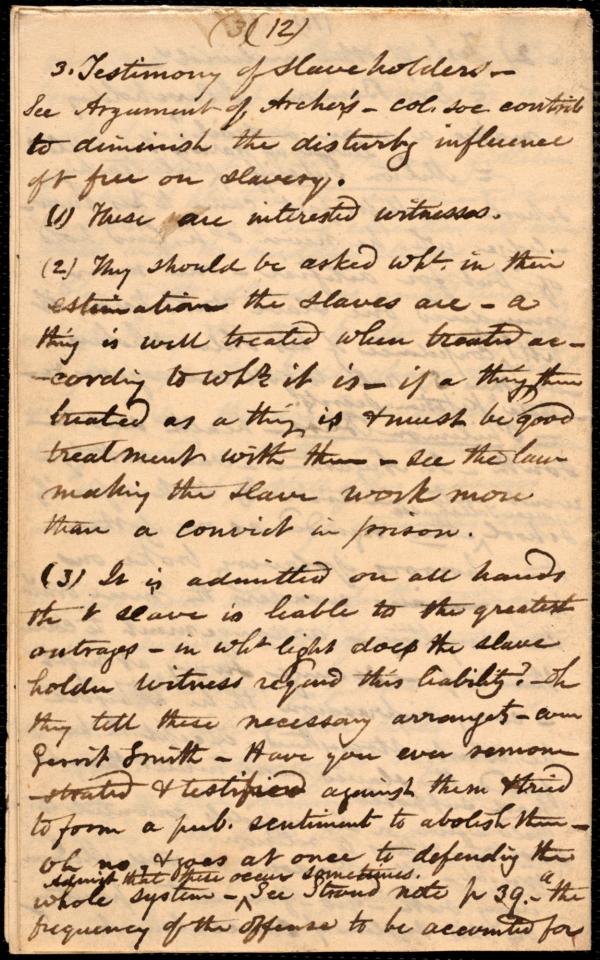 (3(12)
3. Testimony of slaveholders—
See Argument of Archer's – col. soc contrib
to diminish the disturbg influence
of t free on slavery.
(1) These are interested witnesses.
(2) They should be asked wht. in their
estimation the slaves are – a
thing is well treated when treated ac–
–cordig to wht it is – if a thing then
treated as a thing is & must be good
treatment with them – see the law
making the slave work more
than a convict in prison.
(3) It is admitted on all hands
tht t slave is liable to the greatest
outrages – in wht light does the slave
holder witness regard this liability? – Oh
they tell these necessary arrangets – even
Gerrit Smith – Have you ever remon
–strated & testified against them & tried
to form a pub. sentiment to abolish them –
Oh no, & goes at once to defending the
Admit that these occur sometimes.
whole system – ^ See Stroud note p 39. – a the
frequency of the offense to be accounted for